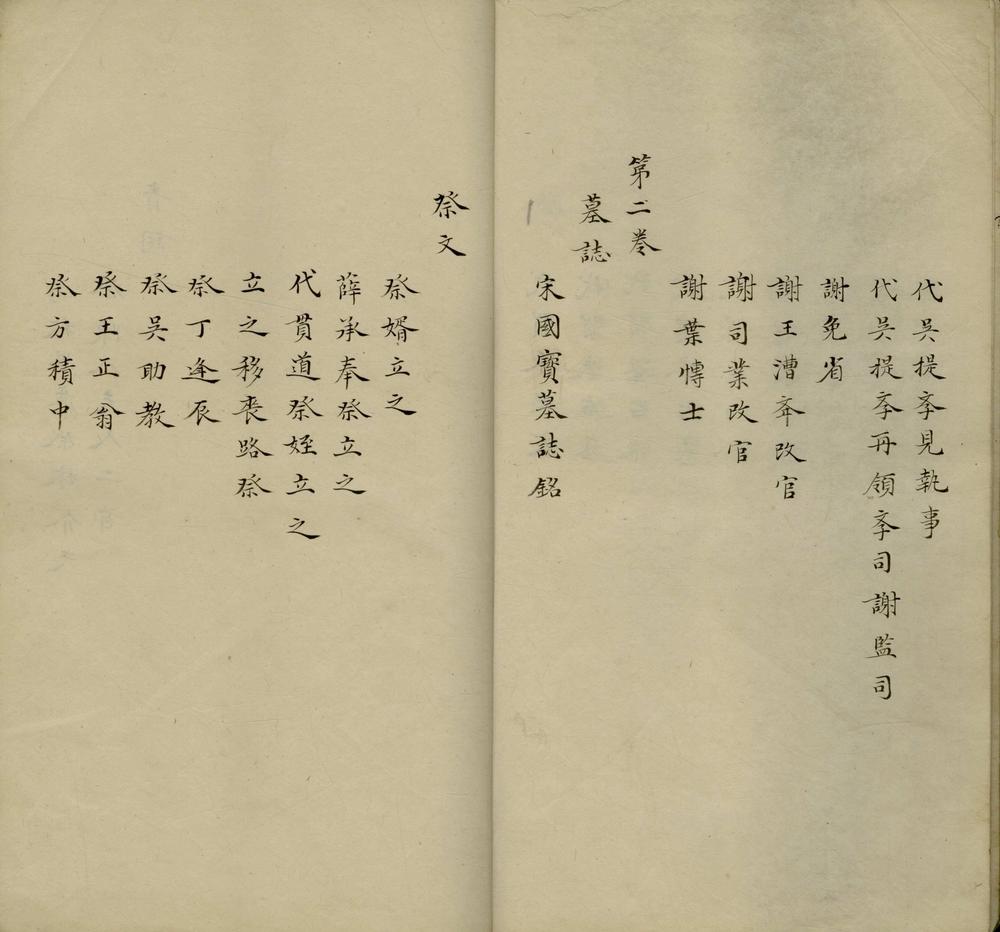 代吳提斈見執事
代吳提斈再領斈司謝監司
謝免省
謝王漕斈改官
謝司業改官
謝葉博士
第二卷
墓誌
宋國寶墓誌銘
祭文
祭婿立之
薛承奉祭立之
代貫道祭姪立之
立之移喪路祭
祭丁逢辰
祭吳助教
祭王正翁
祭方積中